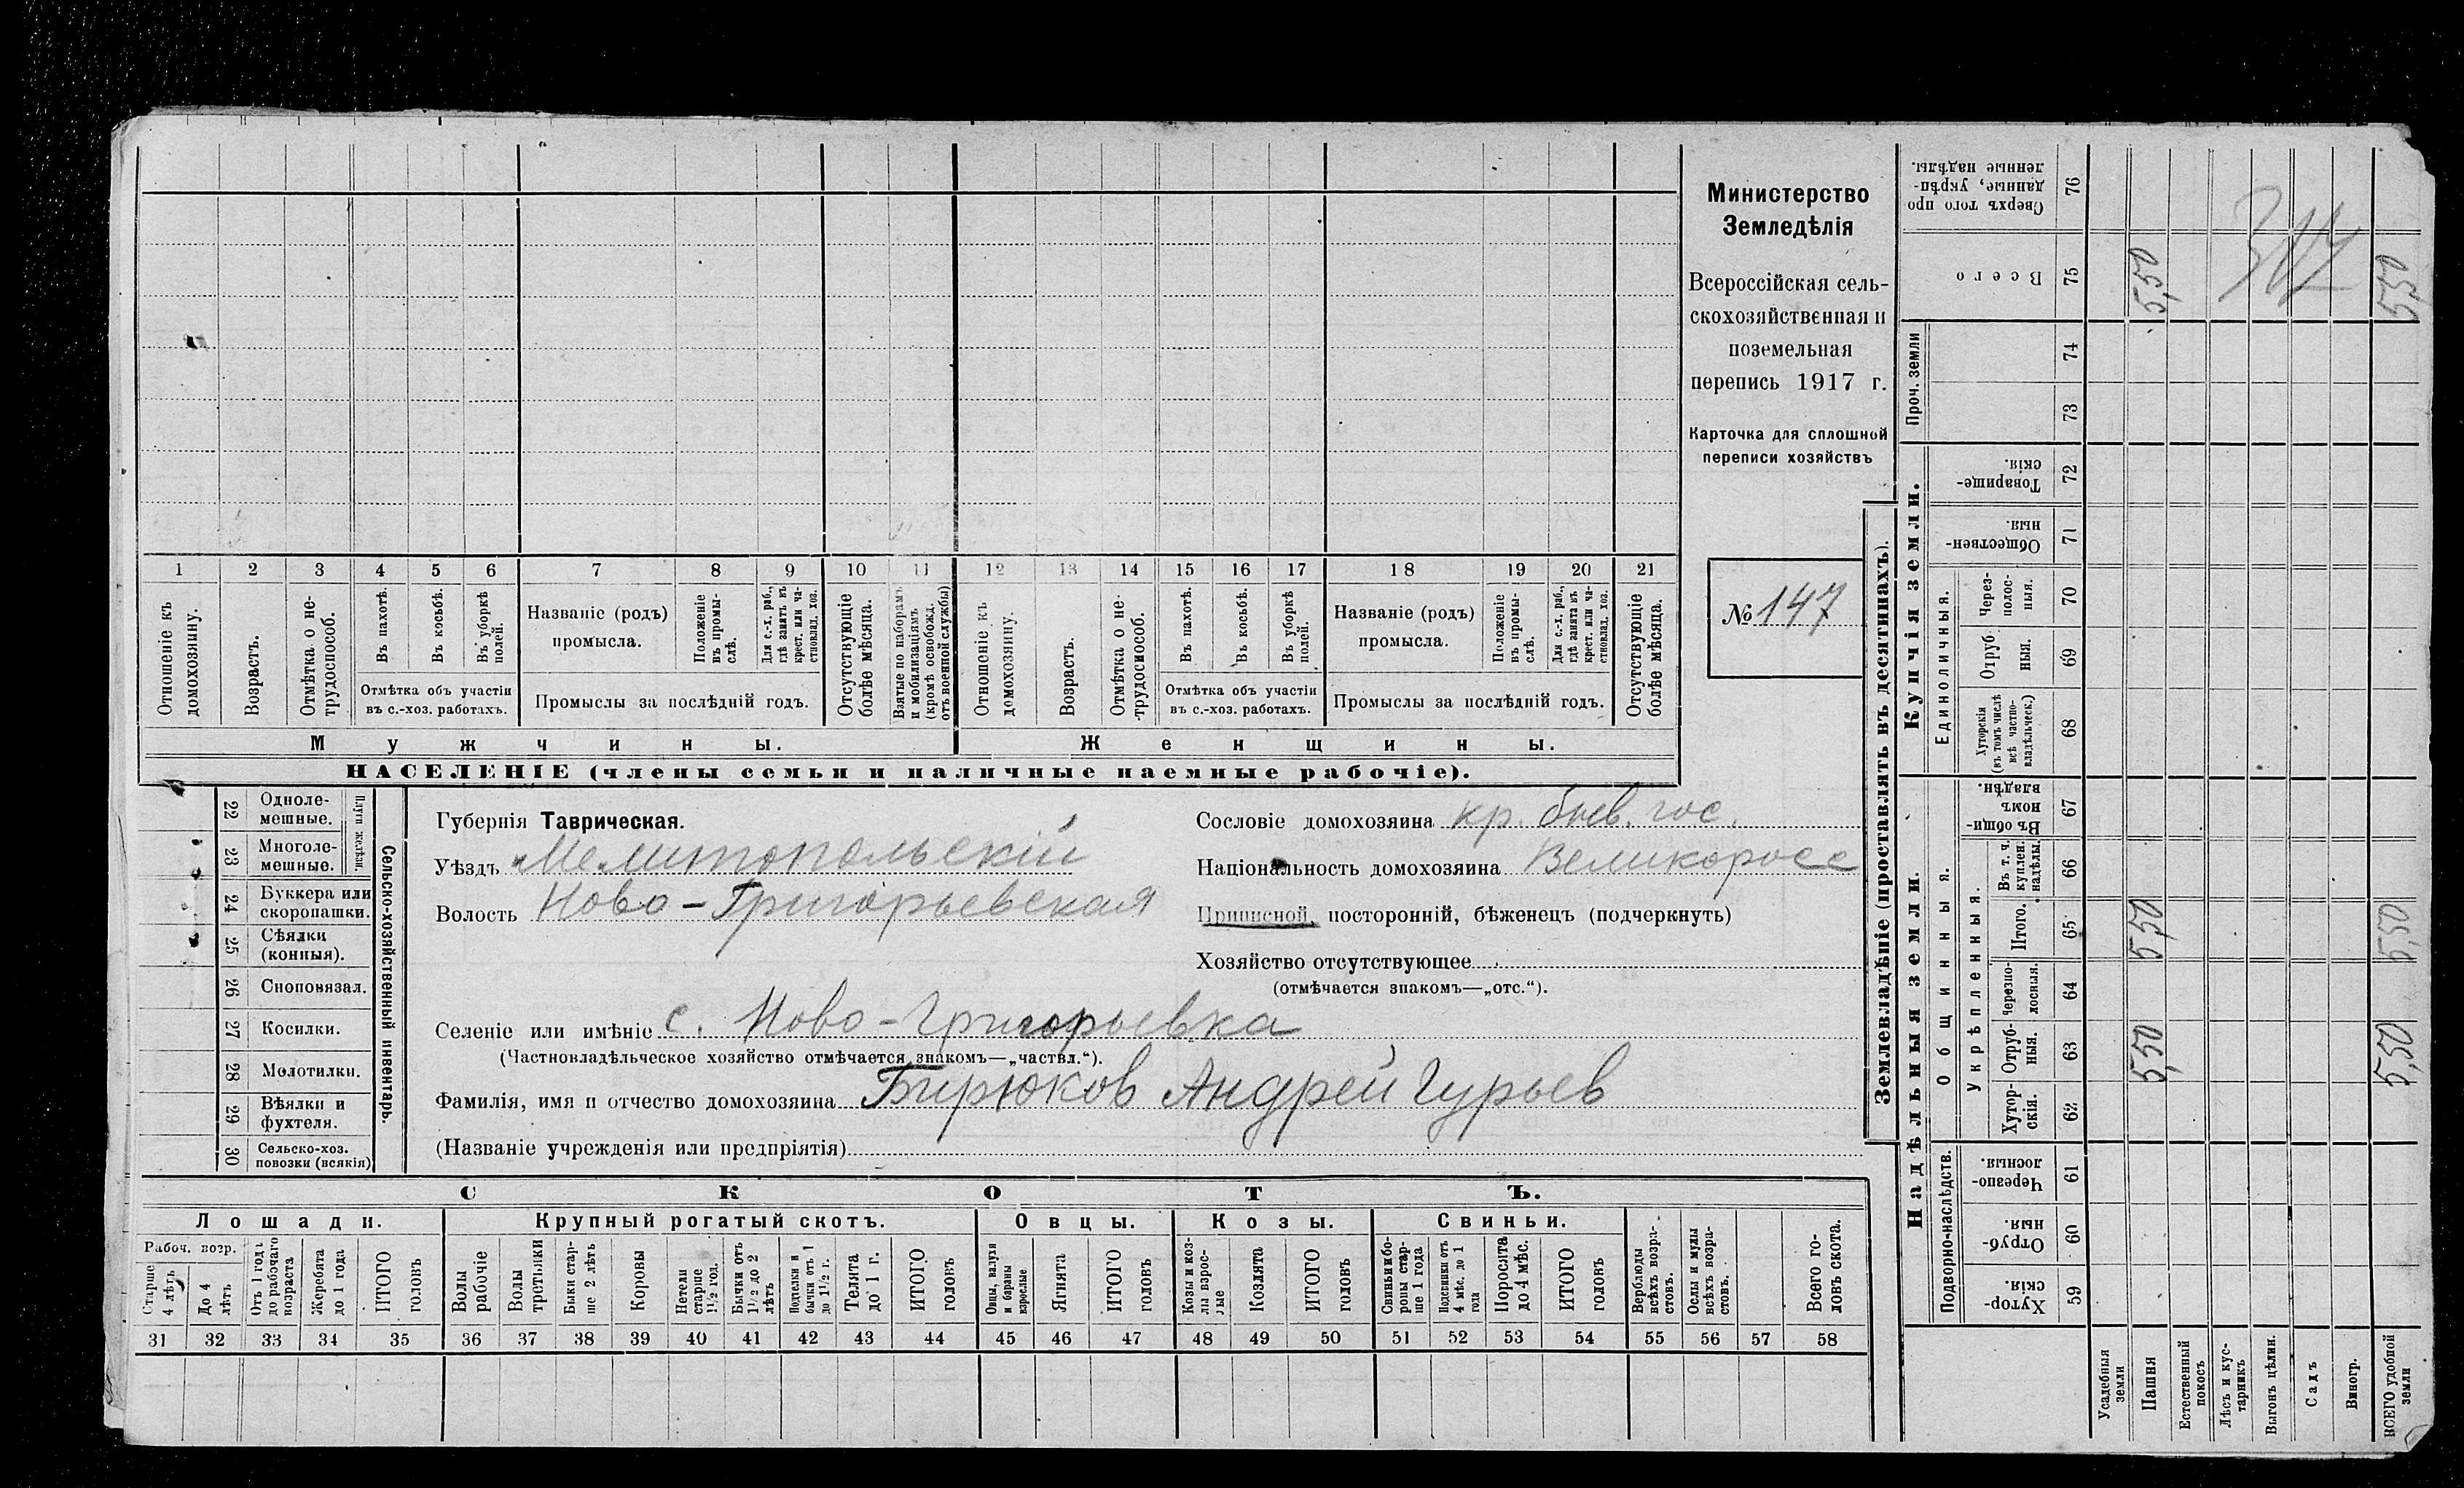 Министерство
Земледѣлія
Всероссійская сель-
скохозяйственная и
поземельная
перепись 1917 г.
Карточка для сплошной
переписи хозяйствъ
№ 147
1 2 3 4 5 6 7 8 9 10 11 12 13 14 15 16 17 18 19 20 21
Отношеніе къ домохозяину.
Возрастъ.
Отмѣтка о не-трудоспособ.
Въ пахотѣ.
Въ косьбѣ.
Въ уборкѣ полей.
Отмѣтка объ участіи
въ с.-хоз. работахъ.
Названіе (родъ)
промысла.
Положеніе въ промы-слѣ.
Для с.-х. раб., гдѣ занятъ въ крест. или ча-стновлад. хоз.
Промыслы за послѣдній годъ.
Отсутствующіе болѣе мѣсяца.
Взятые по наборамъ и мобилизаціямъ (кромѣ освобожд. отъ военной службы)
Отношеніе къ домохозяину.
Возрастъ.
Отмѣтка о не-трудоспособ.
Въ пахотѣ.
Въ косьбѣ.
Въ уборкѣ полей.
Отмѣтка объ участіи
въ с.-хоз. работахъ.
Названіе (родъ)
промысла.
Положеніе въ промы-слѣ.
Для с.-х. раб., гдѣ занятъ въ крест. или ча-стновлад. хоз.
Промыслы за послѣдній годъ.
Отсутствующіе болѣе мѣсяца.
Мужчины. Женщины.
НАСЕЛЕНІЕ (члены семьи и наличные наемные рабочіе).
22 Одноле-мешные.
23 Многоле-мешные.
Плуги желѣзн.
24 Буккера или скоропашки.
25 Сѣялки (конныя).
26 Сноповязал.
27 Косилки.
28 Молотилки.
29 Вѣялки и фухтеля.
30 Сельско-хоз. повозки (всякія)
Сельско-хозяйственный инвентарь.
Губернія Таврическая.
Уѣздъ Мелитопольскій
Волость Ново-Григорьевская
Сословіе домохозяина кр. бывш. гос.
Національность домохозяина Великоросс
Приписной, посторонній, бѣженецъ (подчеркнуть)
Хозяйство отсутствующее
(отмѣчается знакомъ—„отс.“).
Селеніе или имѣніе с. Ново-Григорьевка
(Частновладѣльческое хозяйство отмѣчается знакомъ—„частвл.“).
Фамилія, имя и отчество домохозяина Бирюков Андрей Гурьев
(Названіе учрежденія или предпріятія)
СКОТЪ.
Лошади. Крупный рогатый скотъ. Овцы. Козы. Свиньи.
Рабоч. возр.
Старше 4 лѣтъ
До 4 лѣтъ
Отъ 1 года до рабочаго возраста
Жеребята до 1 года
ИТОГО головъ
Волы рабочіе
Волы третьяки
Быки стар-ше 2 лѣтъ
Коровы
Нетели старше 1½ год.
Бычки отъ 1½ до 2 лѣтъ
Подтелки и бычки отъ 1 до 1½ г.
Телята до 1 г.
ИТОГО головъ
Овцы, валухи и бараны взрослые
Ягнята
ИТОГО головъ
Козы и коз-лы взрос-лые
Козлята
ИТОГО головъ
Свиньи и бо-ровы стар-ше 1 года
Подсвинки отъ 4 мѣс. до 1 года
Поросята до 4 мѣс.
ИТОГО головъ
Верблюды всѣхъ возра-стовъ.
Ослы и мулы всѣхъ возра-стовъ.
Всего го-ловъ скота.
31 32 33 34 35 36 37 38 39 40 41 42 43 44 45 46 47 48 49 50 51 52 53 54 55 56 57 58
Землевладѣніе (проставлять въ десятинахъ).
Сверхъ того про-данные, укрѣп-ленные надѣлы. 76
Всего 75 5,50 5,50
Проч. земли 74
73
Купчія земли.
Товарище-скія. 72
Обществен-ныя. 71
Единоличныя.
Через-полос-ныя. 70
Отруб-ныя. 69
Хуторскія (въ томъ числѣ всѣ частно-владѣльческ.) 68
Надѣльныя земли.
Общинныя.
Въ общин-номъ владѣн. 67
Укрѣпленныя.
Въ т. ч. куплен. надѣлы. 66
Итого. 65 5,50 5,50
Черезпо-лосныя. 64
Отруб-ныя. 63 5,50 5,50
Хутор-скія. 62
Подворно-наслѣдств.
Черезпо-лосныя. 61
Отруб-ныя. 60
Хутор-скія. 59
Усадебныя земли
Пашня
Естественный покосъ
Лѣсъ и кус-тарникъ
Выгонъ цѣлин.
Садъ
Виногр.
ВСЕГО удобной земли